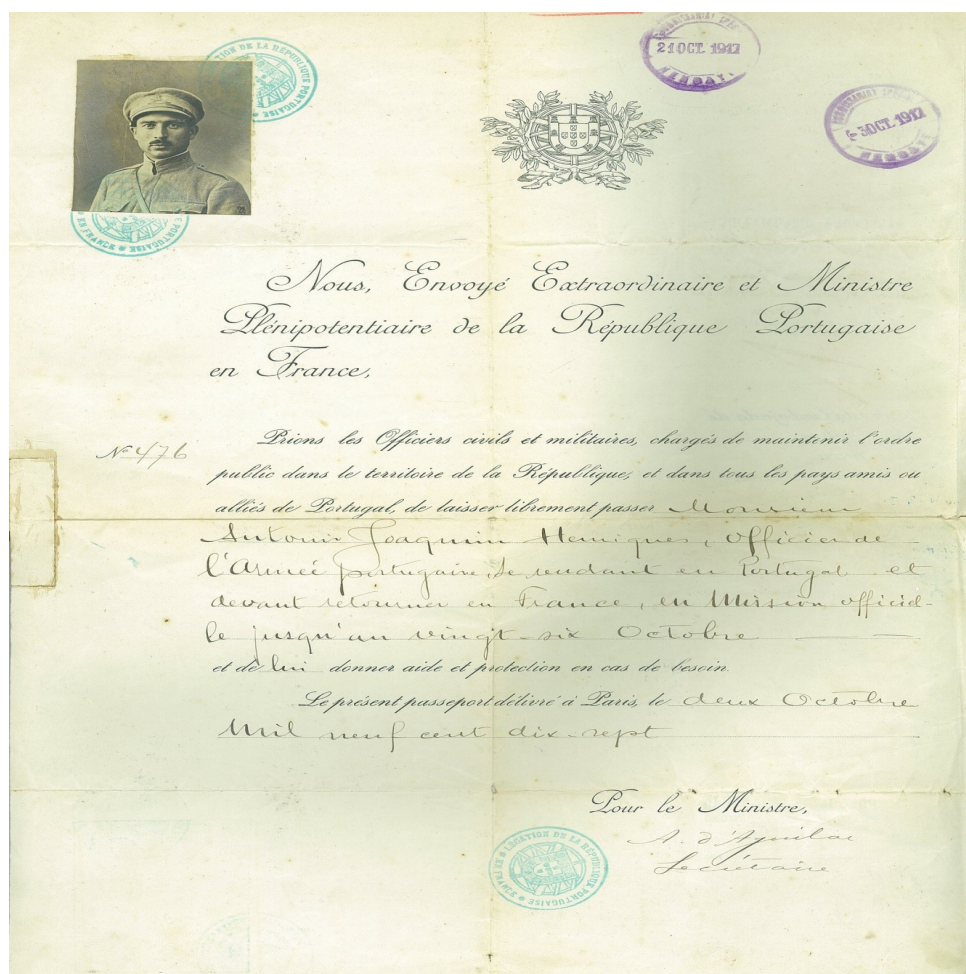 LÉGATION DE LA RÉPUBLIQUE PORTUGAISE
EN FRANCE
21 OCT. 1917
HENDAYE
3 OCT. 1917
HENDAYE
Nous, Envoyé Extraordinaire et Ministre
Plénipotentiaire de la République Portugaise
en France,
Nº 476
Prions les Officiers civils et militaires, chargés de maintenir l'ordre
public dans le territoire de la République, et dans tous les pays amis ou
alliés de Portugal, de laisser librement passer Monsieur
Antonio Joaquim Henriques, officier de
l'Armée portugaise, se rendant en Portugal et
devant retourner en France, en Mission officiel-
le jusqu'au vingt-six Octobre
et de lui donner aide et protection en cas de besoin.
Le présent passeport délivré à Paris, le deux Octobre
Mil neuf cent dix-sept
Pour le Ministre,
A. d'Aguilar
Secrétaire
LÉGATION DE LA RÉPUBLIQUE PORTUGAISE
EN FRANCE